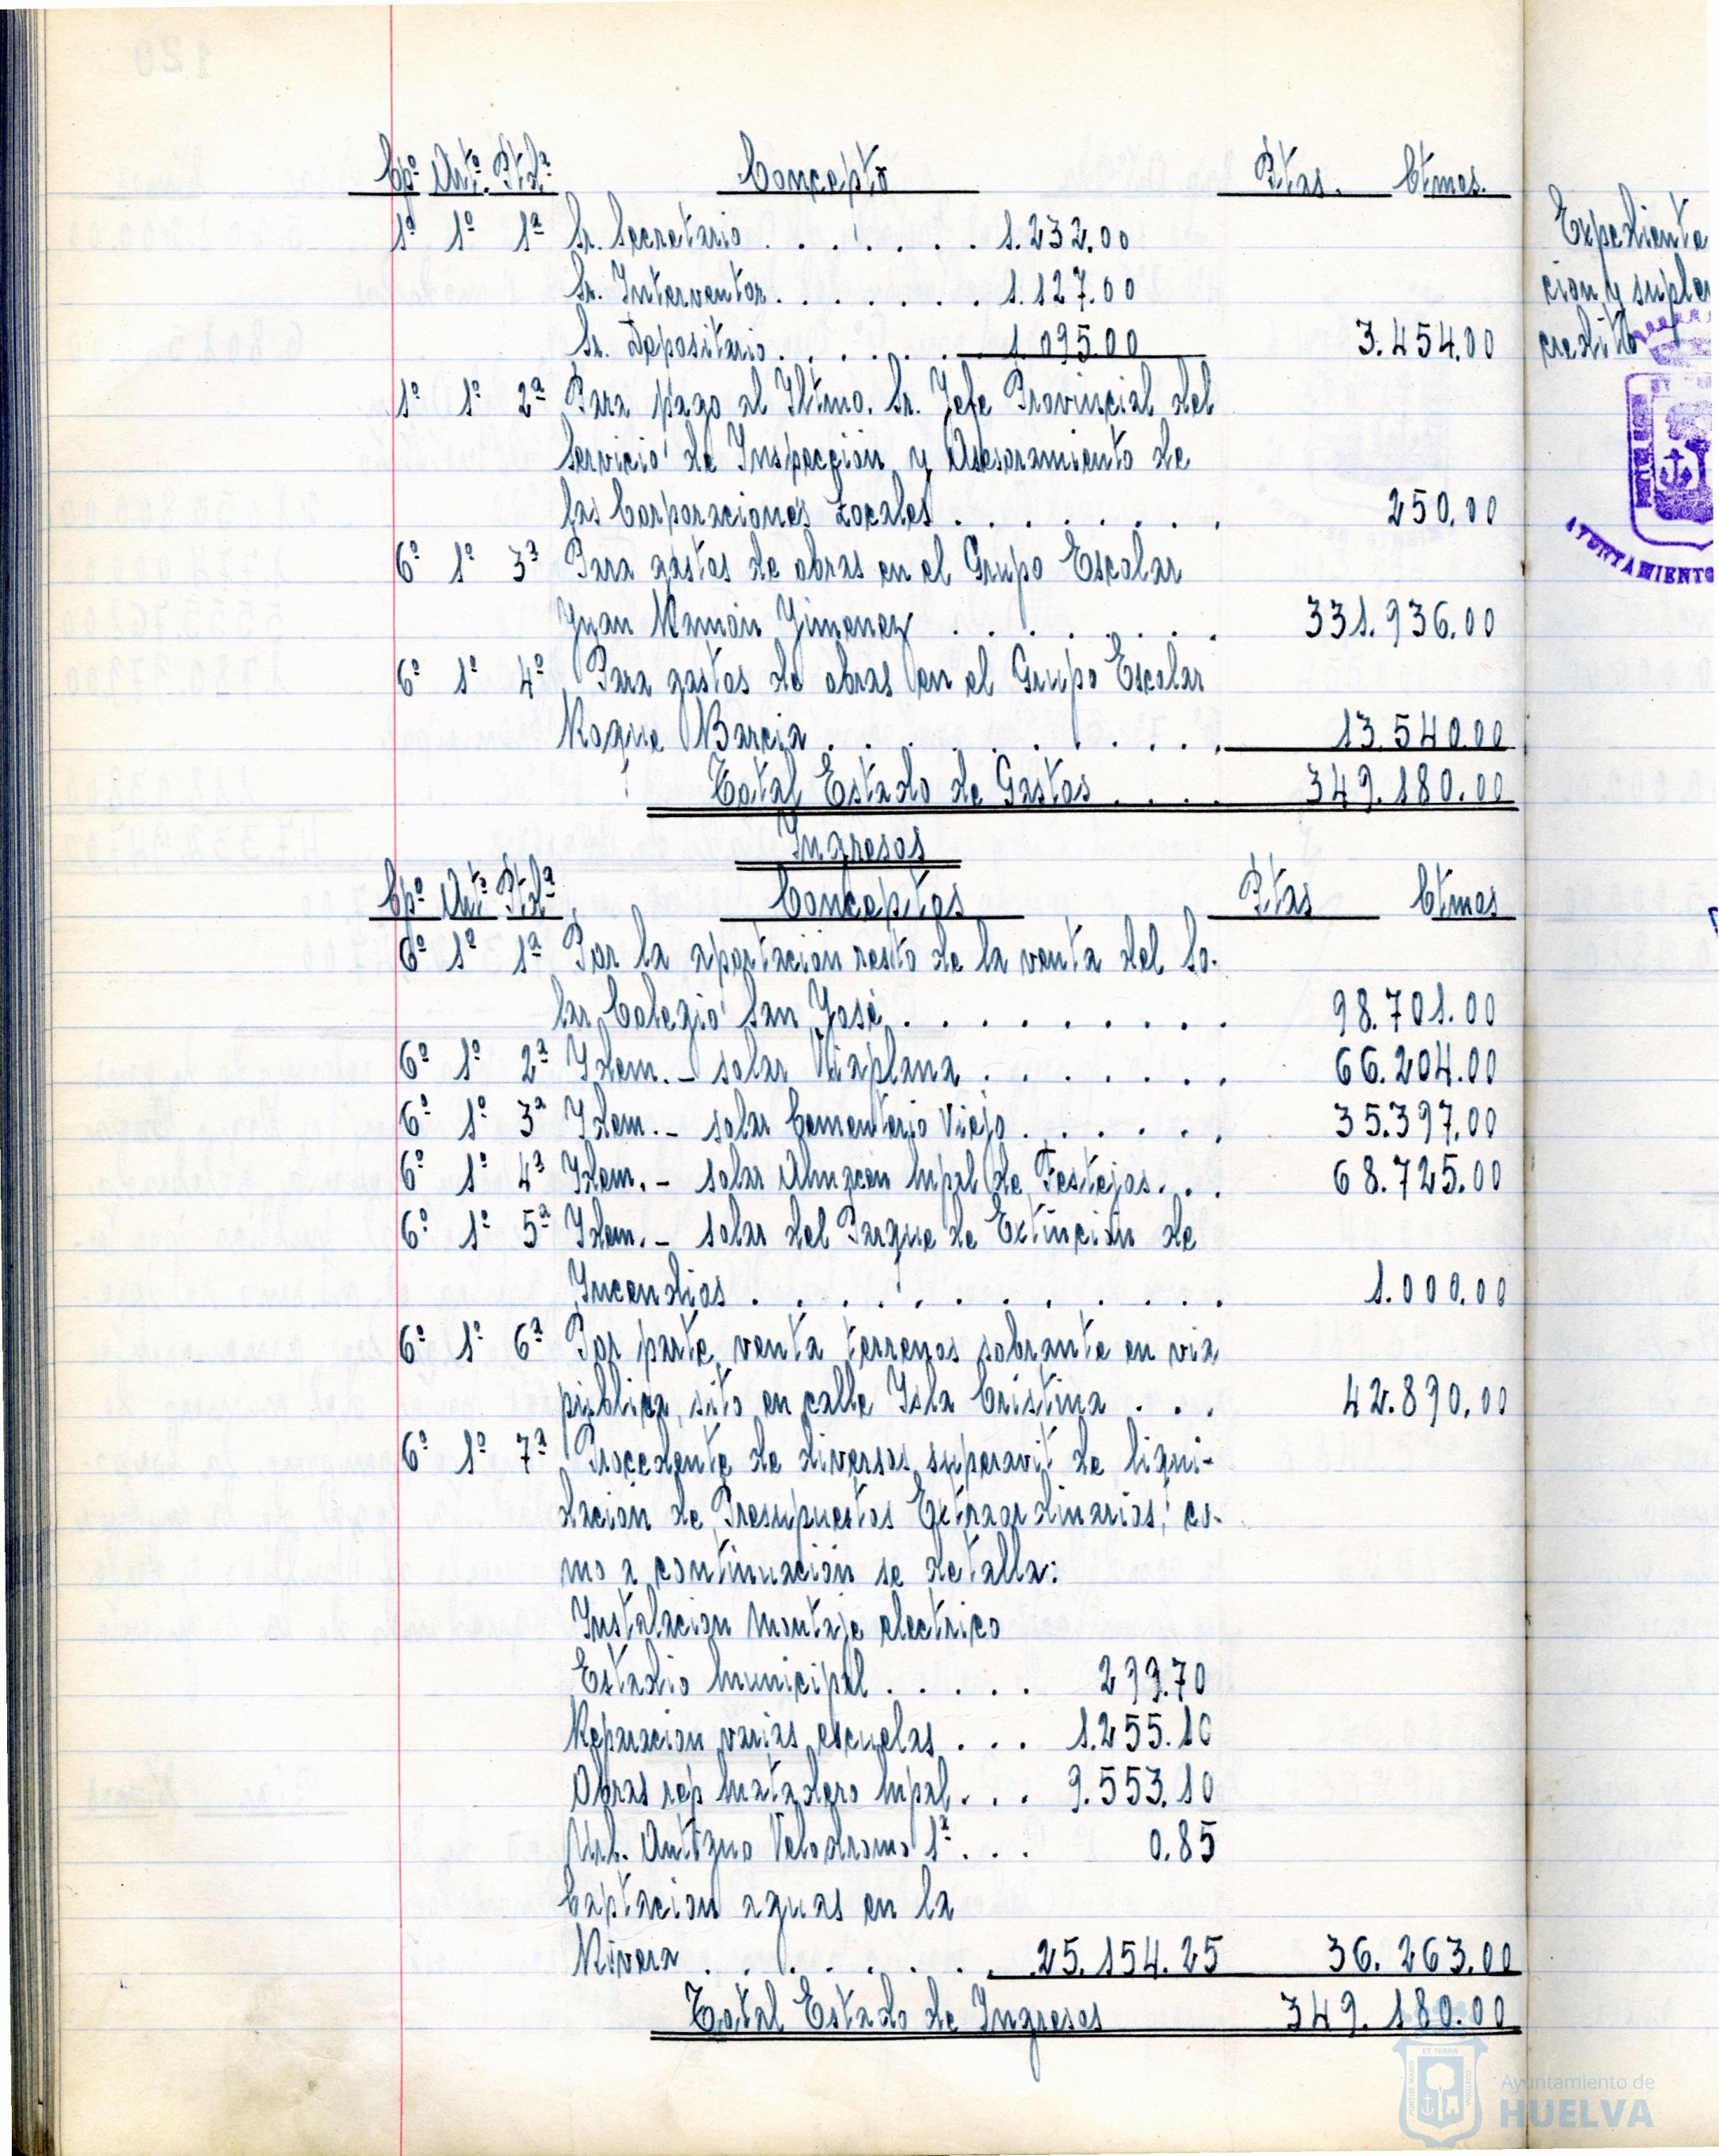 Cpº Artº Ptdª Concepto Ptas. Ctmos.
1º 1º 1ª Sr. Secretario . . . . . . . 1.232.00
Sr. Interventor . . . . . . . 1.127.00
Sr. Depositario . . . . . . . 1.095.00 3.454.00
1º 1º 2ª Para pago al Iltmo. Sr. Jefe Provincial del
Servicio de Inspeccion y Asesoramiento de
las Corporaciones Locales . . . . . . . . 250.00
6º 1º 3ª Para gastos de obras en el Grupo Escolar
Juan Ramón Jimenez . . . . . . . . 331.936.00
6º 1º 4º Para gastos de obras en el Grupo Escolar
Roque Barcia . . . . . . . . . . . 13.540.00
Total Estado de Gastos . . . . 349.180.00
Ingresos
Cpº Artº Ptdª Conceptos Ptas Ctmos
6º 1º 1ª Por la aportación resto de la venta del So-
lar Colegio San José . . . . . . . . . . 98.701.00
6º 1º 2ª Idem.- solar Viaplana . . . . . . . 66.204.00
6º 1º 3ª Idem.- solar Cementerio Viejo . . . . . . 35.397.00
6º 1º 4ª Idem.- solar Almacén Mpal de Festejos . . . 68.725.00
6º 1º 5ª Idem.- solar del Parque de Extinción de
Incendios . . . . . . . . . . . . 1.000.00
6º 1º 6ª Por parte venta terrenos sobrante en via
publica, sito en calle Isla Cristina . . . 42.890.00
6º 1º 7ª Procedente de diversos superavit de liqui-
dación de Presupuestos Extraordinarios, co-
mo a continuación se detalla:
Instalacion montaje electrico
Estadio municipal . . . . . 299.70
Reparacion varias escuelas . . . 1.255.10
Obras rep Matadero Mpal . . . 9.553.10
Urb. Antiguo Velodromo 1ª . . . 0.85
Captacion aguas en la
Rivera . . . . . . . . 25.154.25 36.263.00
Total Estado de Ingresos 349.180.00
Expediente
cion y suple
credito
AYUNTAMIENTO
Ayuntamiento de
HUELVA